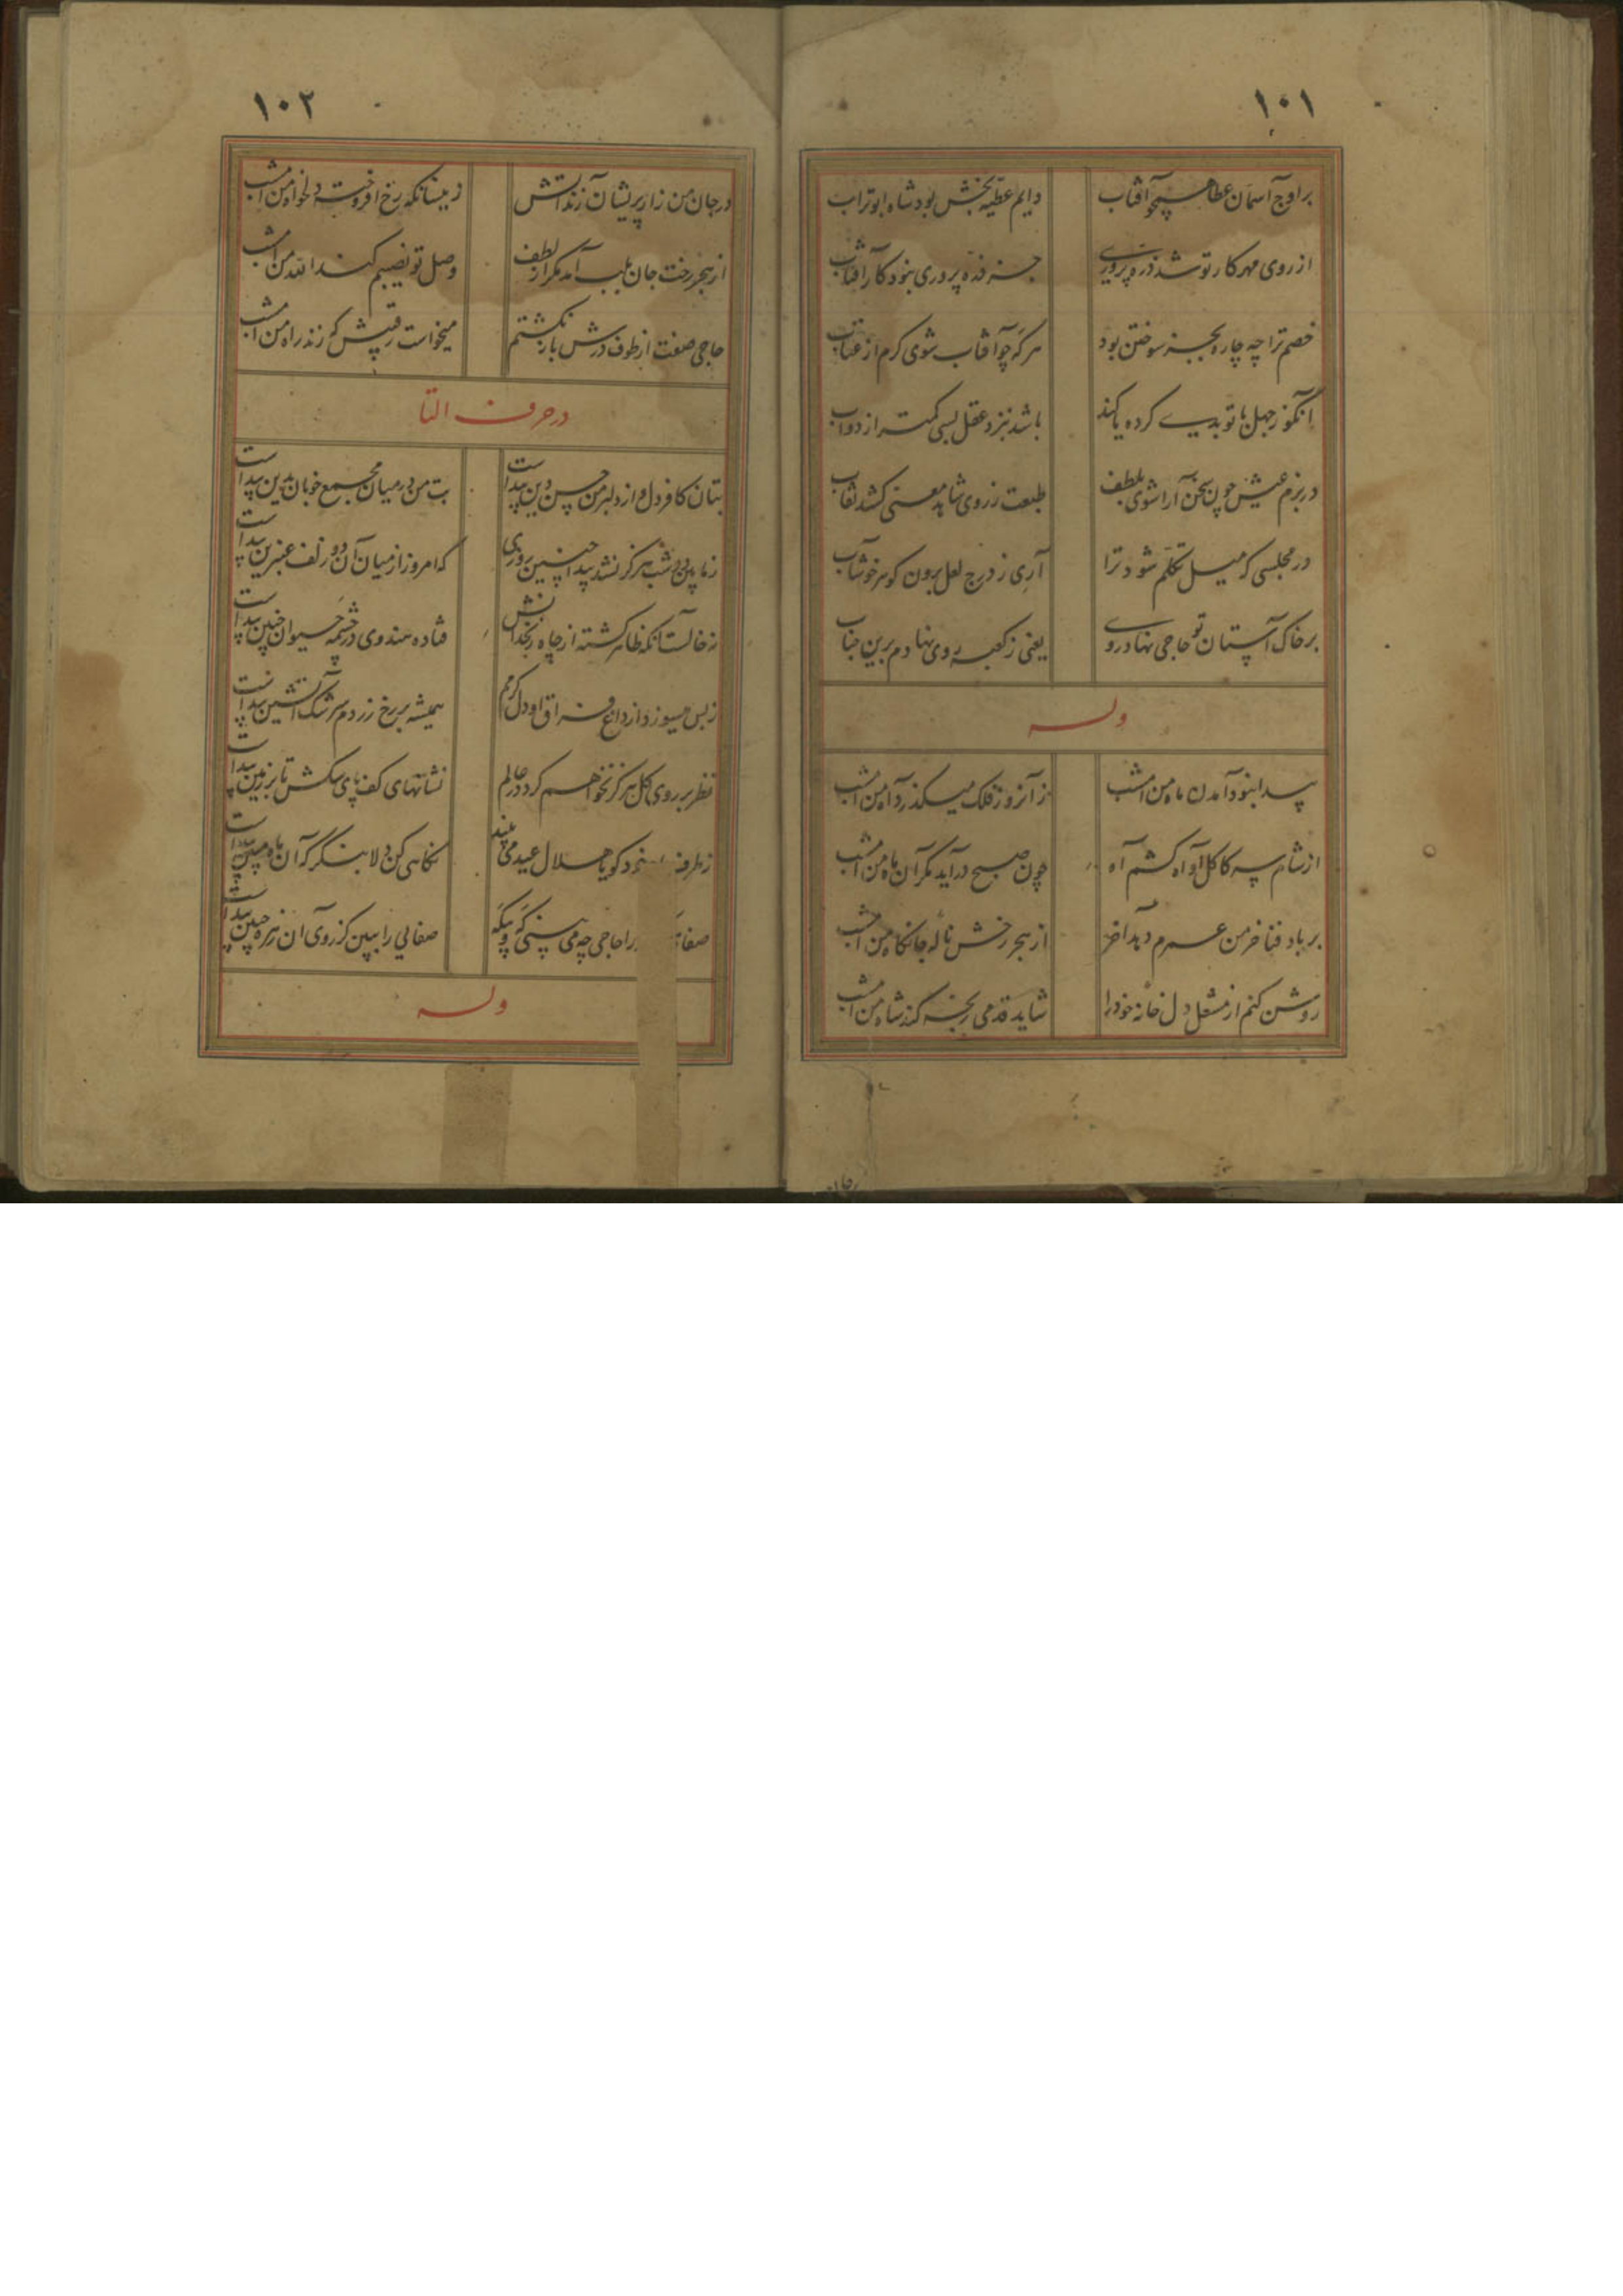 ۱۰۱
بر اوج آسمان عطا همچو آفتاب
دایم عطیه بخش بود شاه ابوتراب
از روی مهر کار تو شد ذره پروری
جز ذره پروری نبود کار آفتاب
خصم ترا چه چاره بجز سوختن بود
هر که چو آفتاب شوی گرم از عتاب
آنکو ز جهل با تو بدی کرده یا کند
باشد نزد عقل بسی کمتر از دواب
در بزم عیش چون سخن آرا شوی بلطف
طبعت ز روی شاهد معنی کشد نقاب
در مجلسی که میل تکلم شود ترا
آری ز درج لعل برون گوهر خوشاب
بر خاک آستان تو حاجی نهاد روی
یعنی ز کعبه روی نهادم برین جناب
وله
پیدا نبود آمدن ماه من امشب
زآنرو ز فلک میگذرد آه من امشب
از شام سیه کاکل او آه کشم آه
چون صبح درآید مگر آن ماه من امشب
بر باد فنا خرمن عمرم دهد آخر
از هجر رخش ناله جانکاه من امشب
روشن کنم از مشعل دل خانه خود را
شاید قدمی رنجه کند شاه من امشب
۱۰۲
در جان من زار پریشان زند آتش
زینسانکه رخ افروخته دلخواه من امشب
از هجر رخت جان بلب آمد مگر از لطف
وصل تو نصیبم کند الله من امشب
حاجی صفت از طوف درش باز نگشتم
میخواست رقیبش که زند راه من امشب
در حرف التا
بتان کافر دل و از دلبر من حسن دین پیداست
بت من در میان مجمع خوبان بدین پیداست
هرگز نشد پیدا چنین روزی
که امروز از میان آن دو زلف عنبرین پیداست
نه خالست آنکه ظاهر گشته از چاه زنخدانش
فتاده هندوی در چشمه حیوان چنین پیداست
ز بس میسوزد از داغ فراق او دل گرمم
همیشه بر رخ زردم سرشک آتشین پیداست
نظر بر روی گل هرگز نخواهم کرد در عالم
نشانهای کف پای سگش تا بر زمین پیداست
ز طرف خود گویا هلال عید می بیند
نگاهی کن دلا بنگر که آن ماه
را حاجی چه می بینی که در مکه
صفایی را ببین کز روی آن زهره جبین پیداست
وله